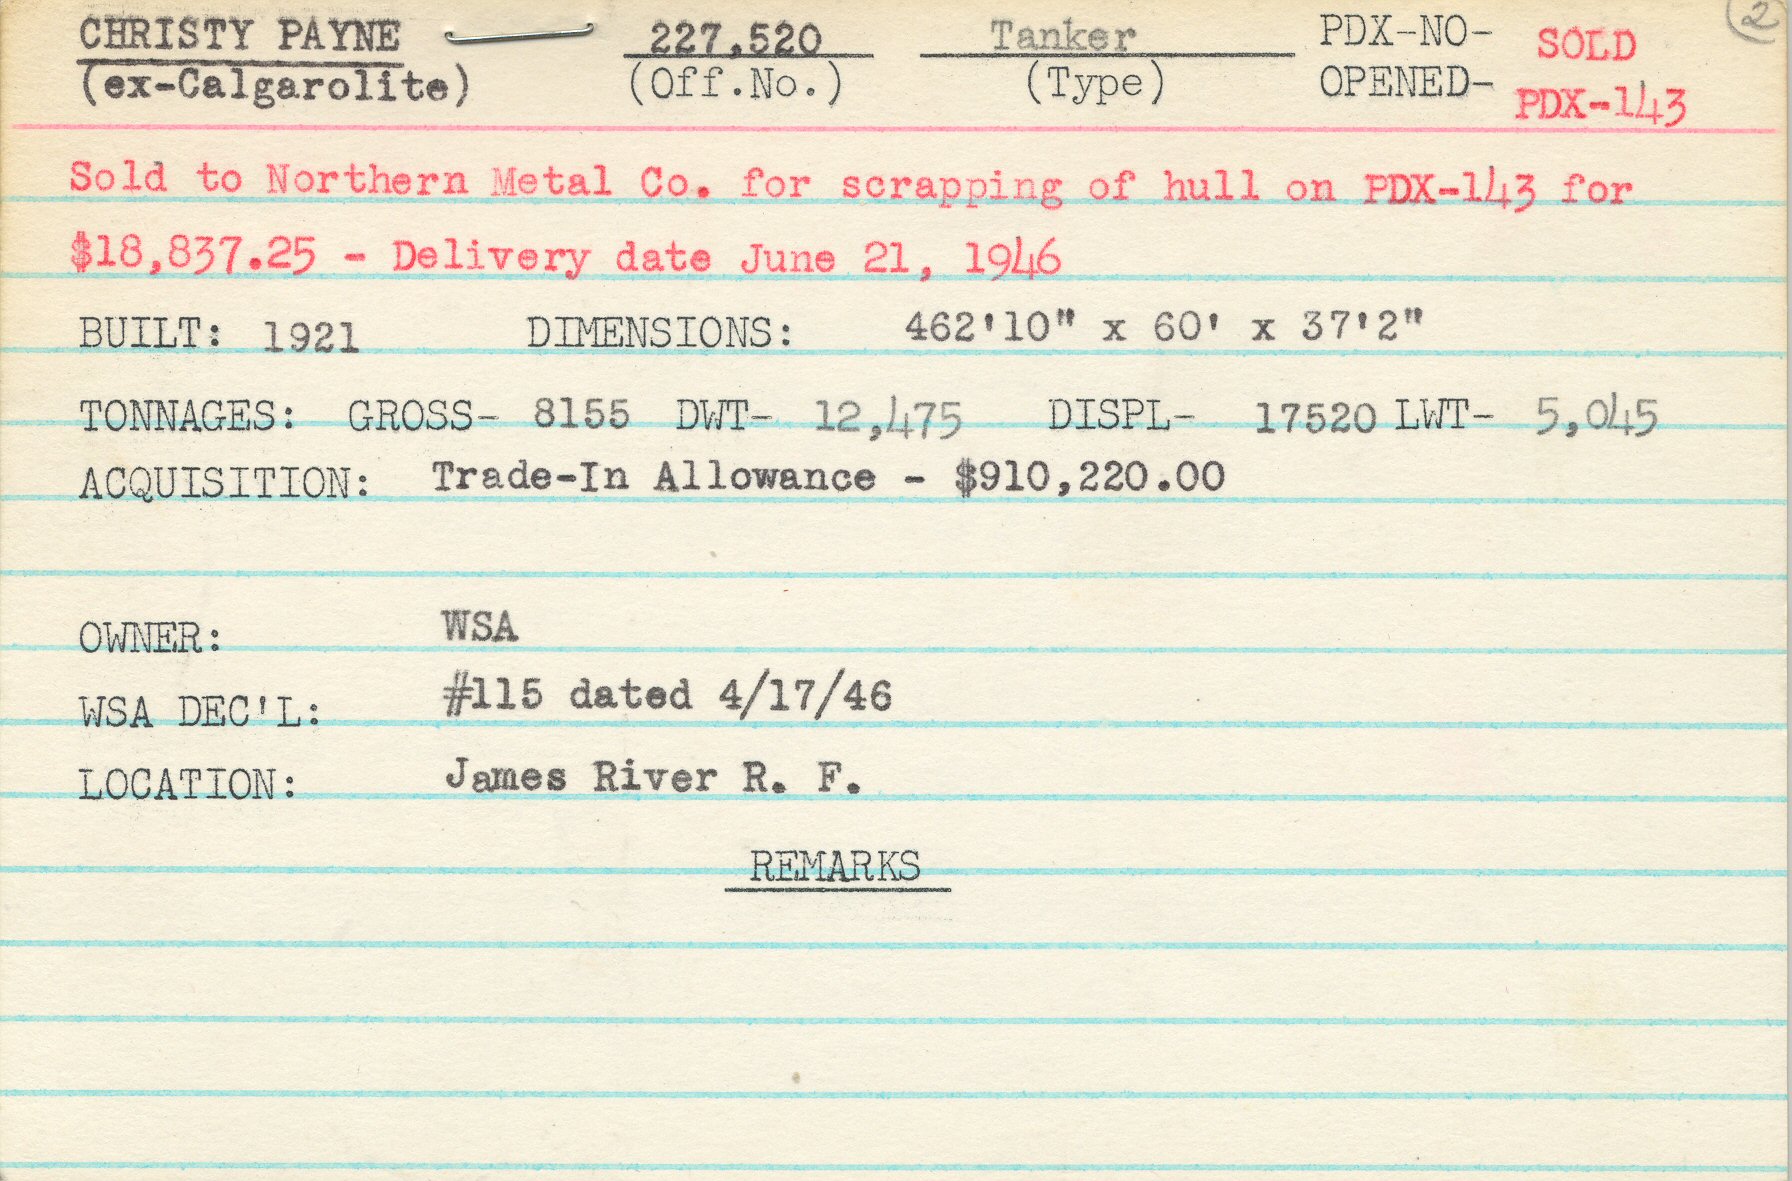 CHRISTY PAYNE 227,520 Tanker PDX-NO- SOLD 2
(ex-Calgarolite) (Off.No.) (Type) OPENED- PDX-143
Sold to Northern Metal Co. for scrapping of hull on PDX-143 for
$18,837.25 - Delivery date June 21, 1946
BUILT: 1921 DIMENSIONS: 462'10" x 60' x 37'2"
TONNAGES: GROSS- 8155 DWT- 12,475 DISPL- 17520 LWT- 5,045
ACQUISITION: Trade-In Allowance - $910,220.00
OWNER: WSA
WSA DEC'L: #115 dated 4/17/46
LOCATION: James River R. F.
REMARKS